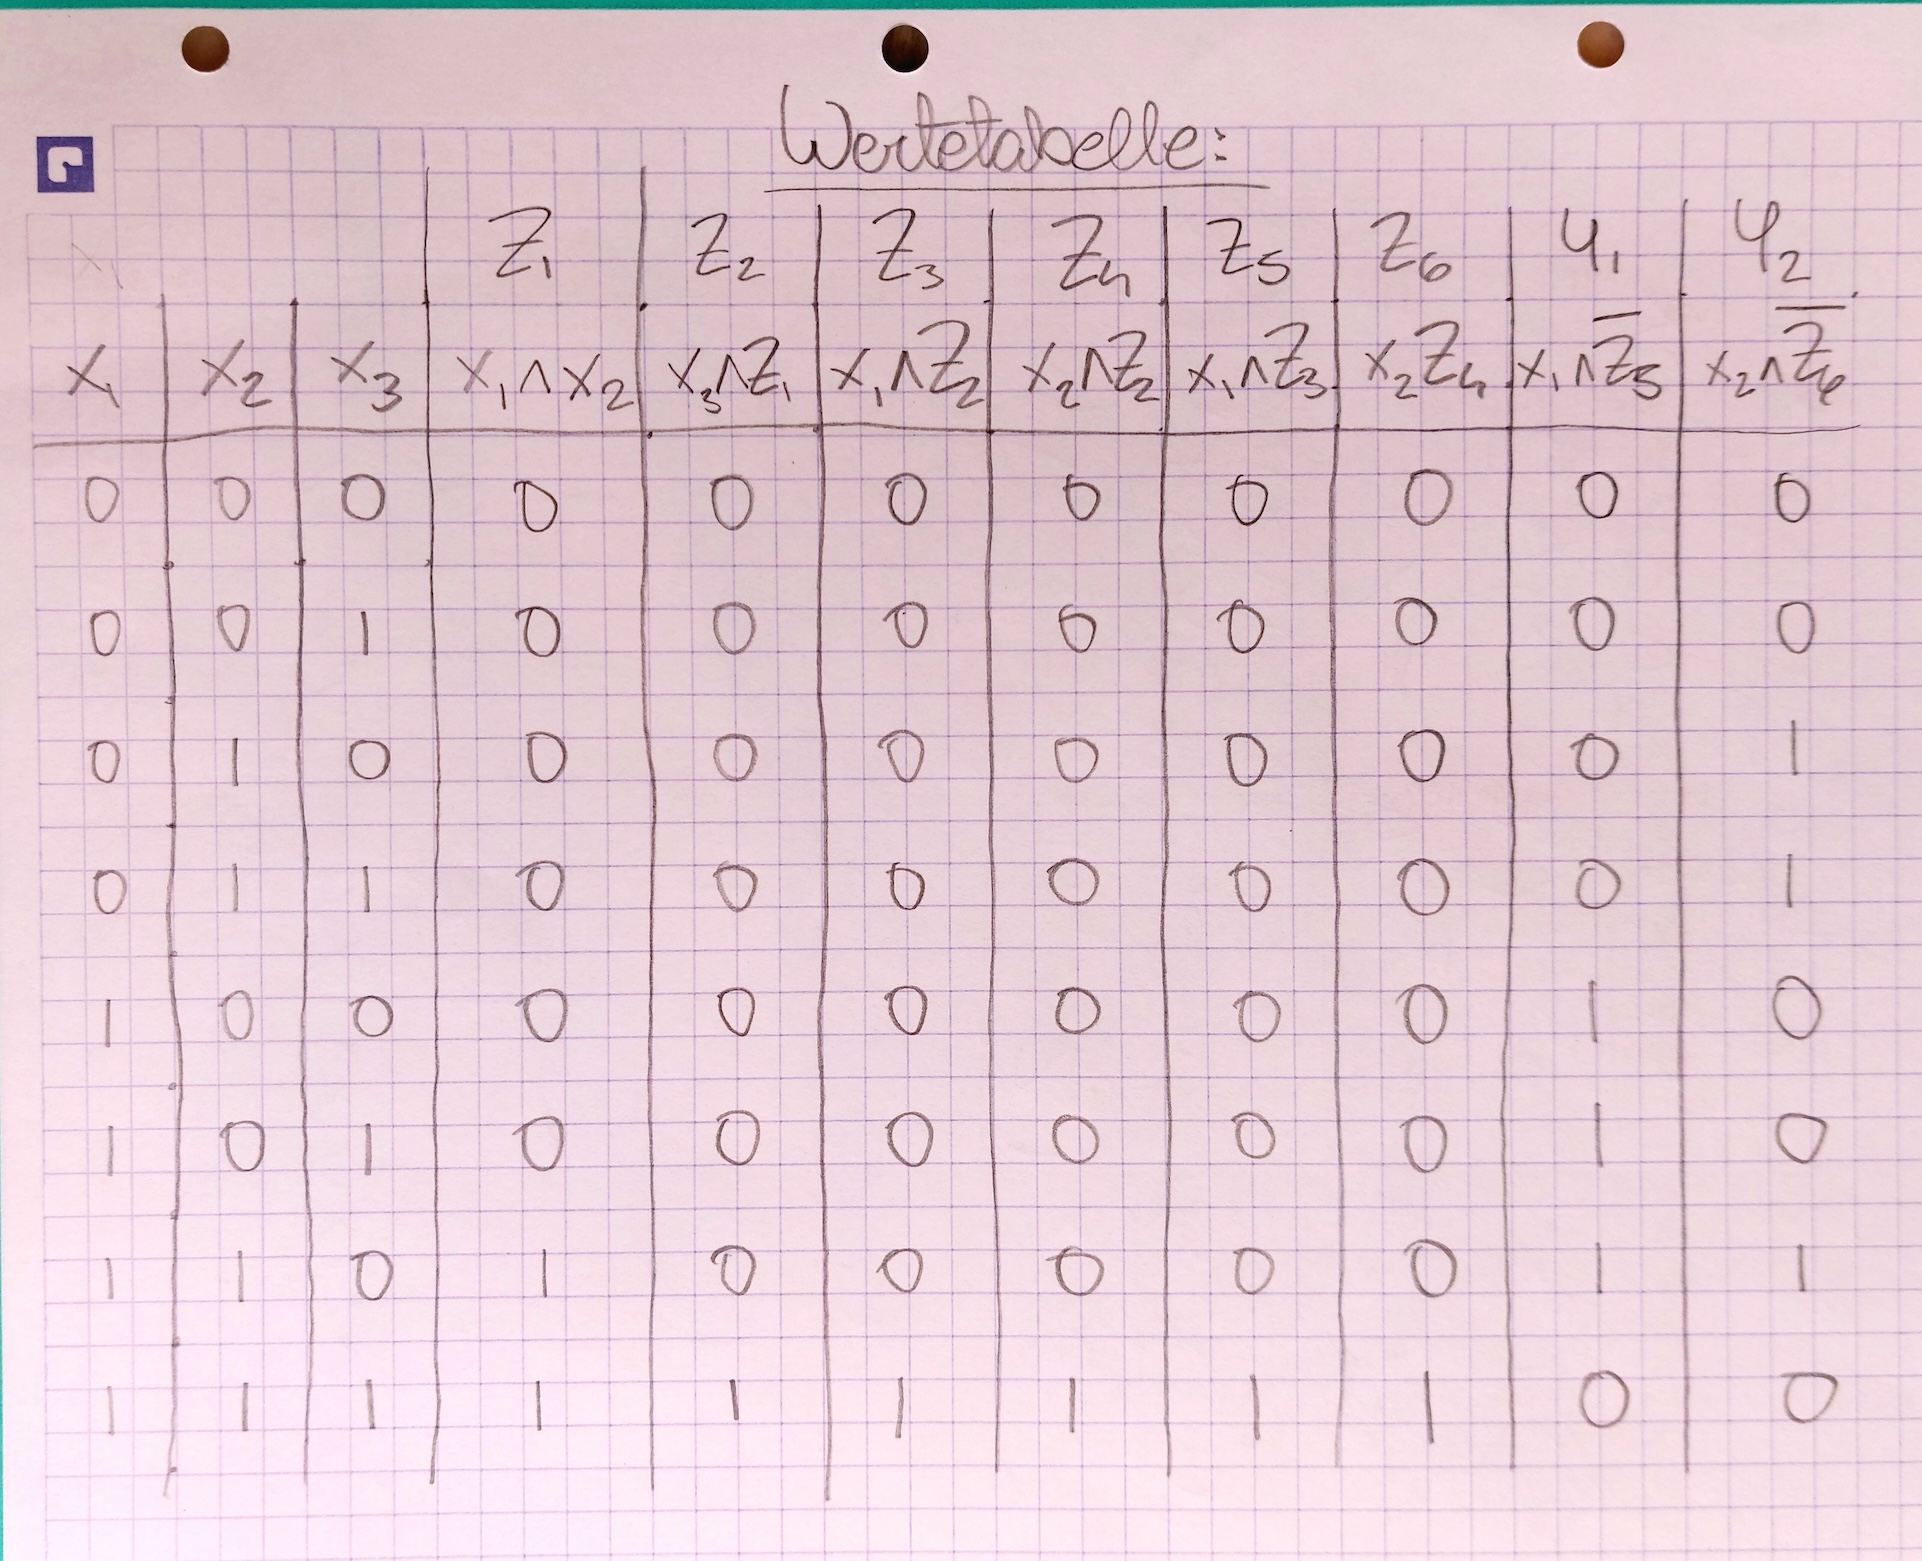 Wertetabelle:
Z₁ Z₂ Z₃ Z₄ Z₅ Z₆ y₁ y₂
x₁ x₂ x₃ x₁∧x₂ x₃∧Z₁ x₁∧Z₂ x₂∧Z₂ x₁∧Z₃ x₂Z₄ x₁∧Z̅₅ x₂∧Z̅₆
0 0 0 0 0 0 0 0 0 0 0
0 0 1 0 0 0 0 0 0 0 0
0 1 0 0 0 0 0 0 0 0 1
0 1 1 0 0 0 0 0 0 0 1
1 0 0 0 0 0 0 0 0 1 0
1 0 1 0 0 0 0 0 0 1 0
1 1 0 1 0 0 0 0 0 1 1
1 1 1 1 1 1 1 1 1 0 0